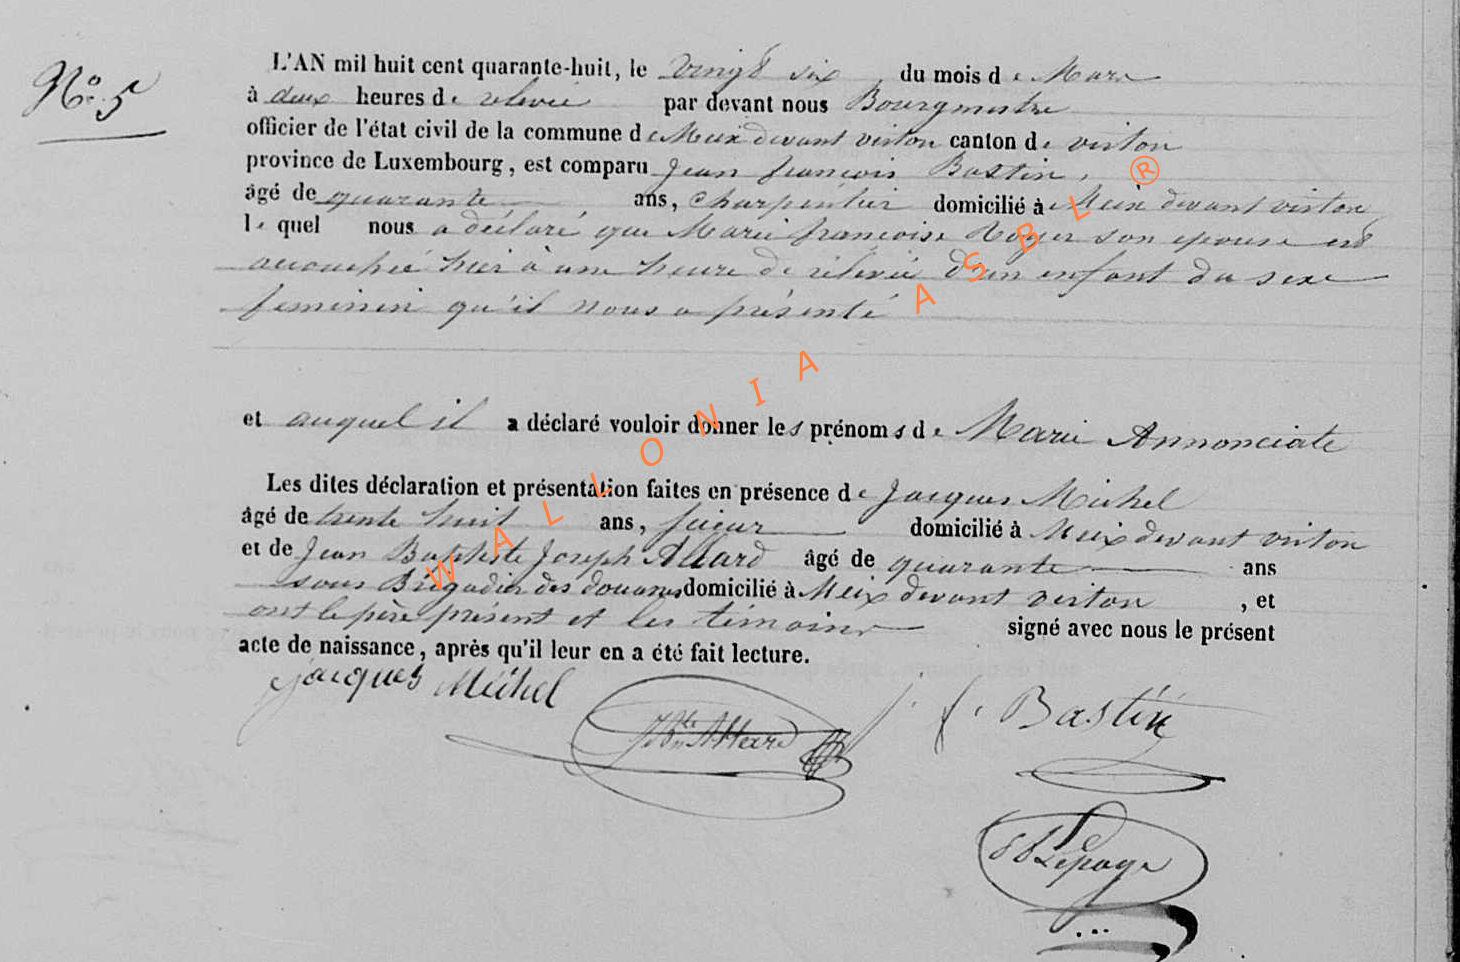 N° 5
L'AN mil huit cent quarante-huit, le vingt six du mois de Mars
à deux heures de relevée par devant nous Bourgmestre
officier de l'état civil de la commune de Meix devant virton canton de virton
province de Luxembourg, est comparu Jean françois Bastin,
âgé de quarante ans, charpentier domicilié à Meix devant virton
lequel nous a déclaré que Marie françoise Royer son epouse est
accouchée hier à une heure de relevée d'un enfant du sexe
feminin qu'il nous a présenté
et auquel il a déclaré vouloir donner les prénoms de Marie Annonciate
Les dites déclaration et présentation faites en présence de Jacques Michel
âgé de trente huit ans, domicilié à Meix devant virton
et de Jean Baptiste Joseph Allard âgé de quarante ans
sous Brigadier des douanes domicilié à Meix devant virton, et
ont le père présent et les témoins signé avec nous le présent
acte de naissance, après qu'il leur en a été fait lecture.
Jacques Michel
JBte Allard
j. f. Bastin
Lepage
WALLONIA ASBL ®